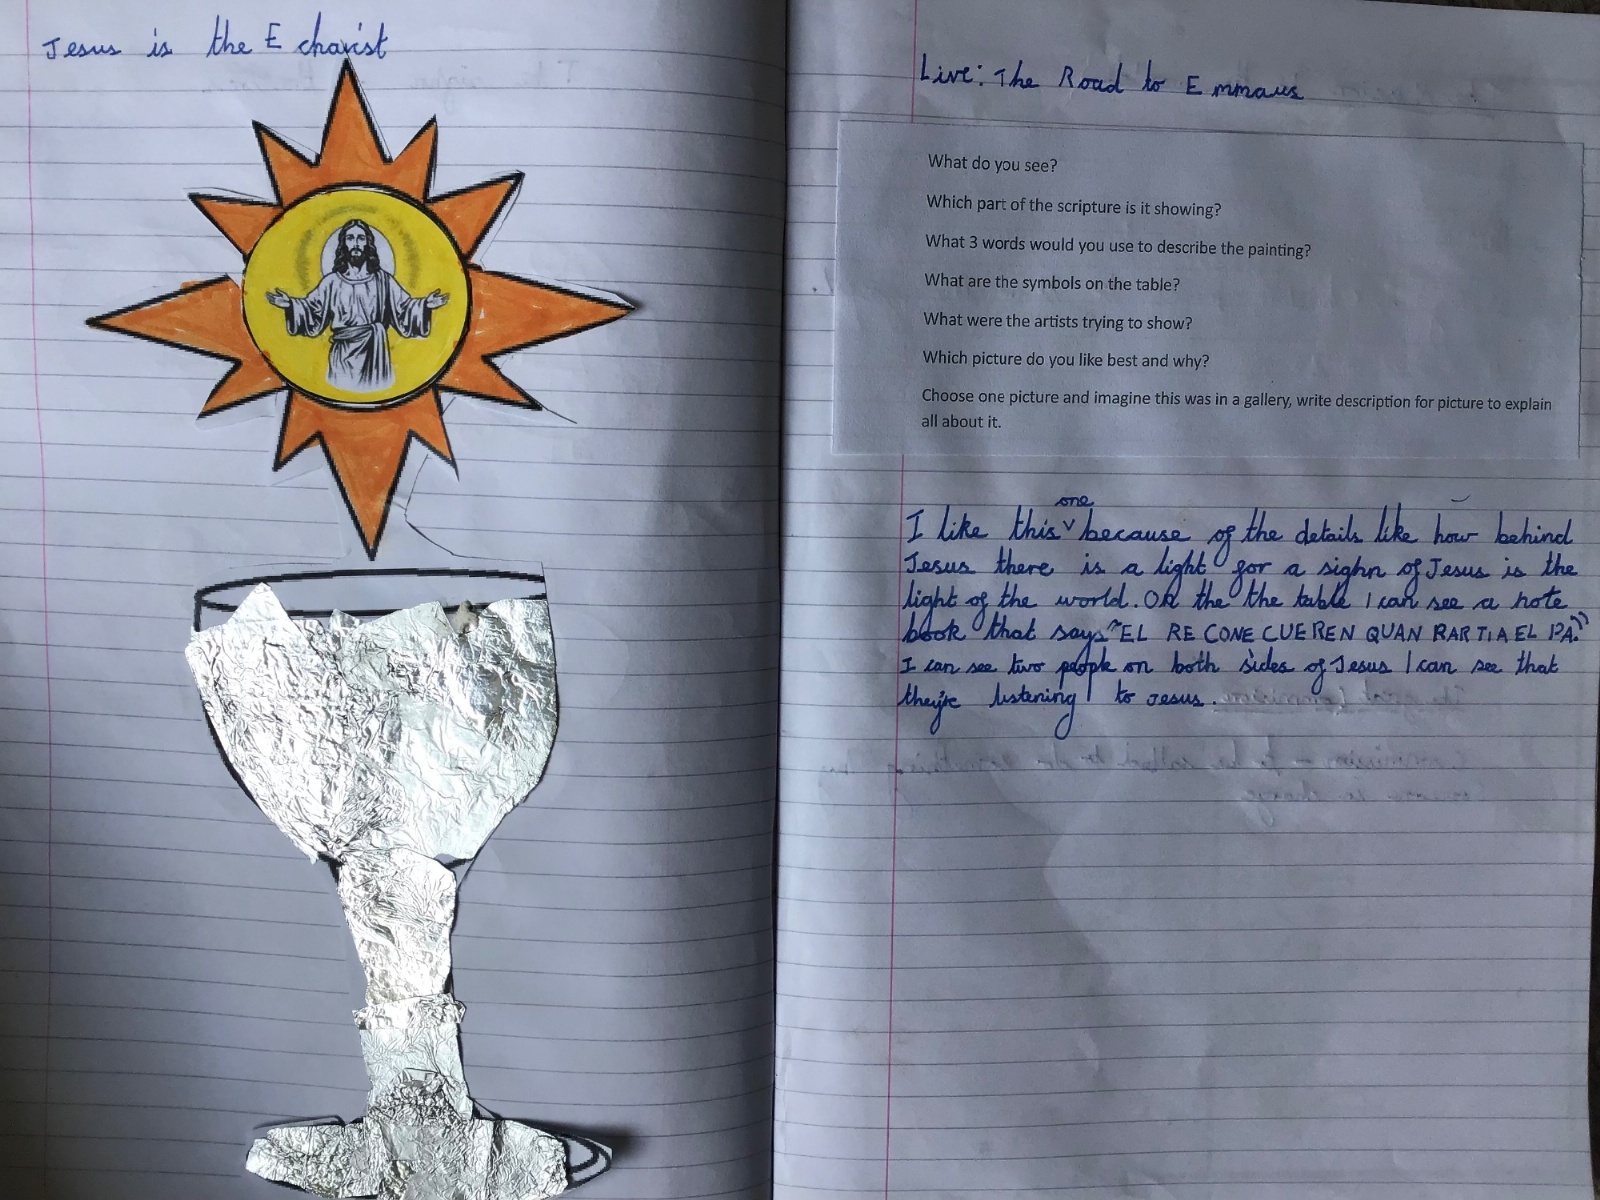 Jesus is the E charist
Live: The Road to Emmaus
What do you see?
Which part of the scripture is it showing?
What 3 words would you use to describe the painting?
What are the symbols on the table?
What were the artists trying to show?
Which picture do you like best and why?
Choose one picture and imagine this was in a gallery, write description for picture to explain
all about it.
one
I like this ˅ because of the details like how behind
Jesus there is a light for a sighn of Jesus is the
light of the world. On the the table I can see a note
book that says "EL RE CONE CUEREN QUAN RARTIA EL PA."
I can see two people on both sides of Jesus I can see that
they're listening to Jesus.